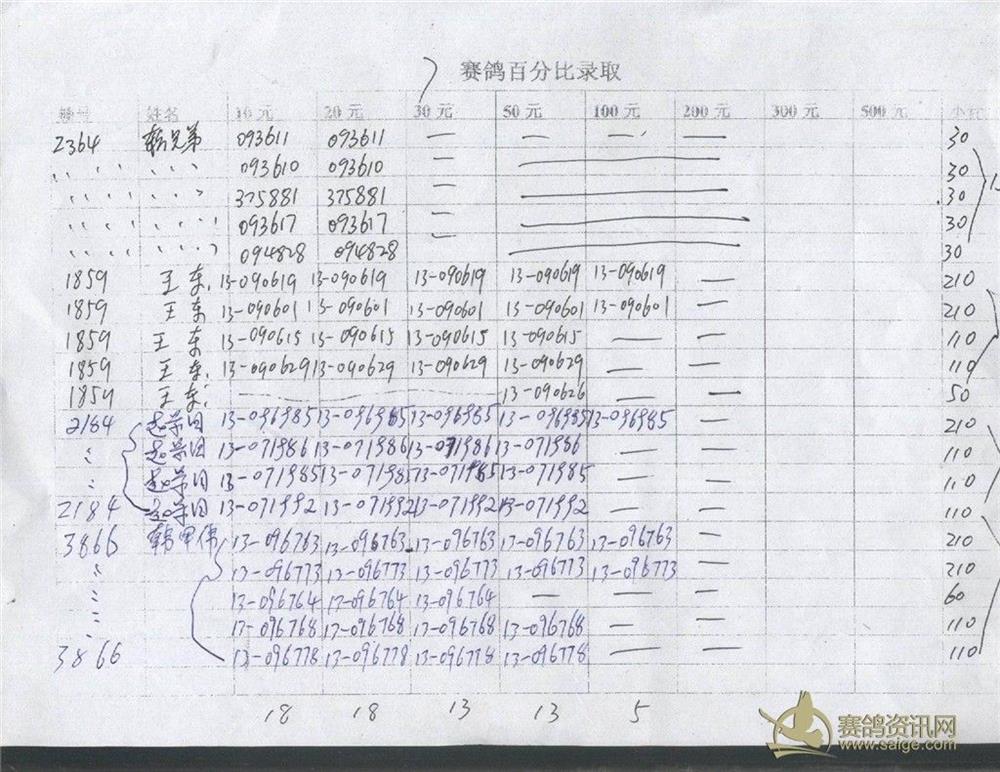 赛鸽百分比录取
棚号 姓名 10元 20元 30元 50元 100元 200元 300元 500元 小计
2364 韩兄弟 093611 093611 — — — — 30
〃 〃 093610 093610 — — 30
〃 〃 375881 375881 — — 30
〃 〃 093617 093617 — — 30
〃 〃 094828 094828 — — 30
1859 王东 13-090619 13-090619 13-090619 13-090619 13-090619 — 210
1859 王东 13-090601 13-090601 13-090601 13-090601 13-090601 — 210
1859 王东 13-090615 13-090615 13-090615 13-090615 — — 110
1859 王东 13-090629 13-090629 13-090629 13-090629 — — 110
1859 王东 13-090626 — — 50
2184 13-096985 13-096985 13-096985 13-096985 13-096985 — 210
〃 13-071986 13-071986 13-071986 13-071986 — — 110
〃 13-071985 13-071985 13-071985 13-071985 — — 110
2184 13-071992 13-071992 13-071992 13-071992 — — 110
3866 13-096763 13-096763 13-096763 13-096763 13-096763 — 210
〃 13-096773 13-096773 13-096773 13-096773 13-096773 — 210
〃 13-096764 13-096764 13-096764 — — — 60
〃 13-096768 13-096768 13-096768 13-096768 — — 110
3866 13-096778 13-096778 13-096778 13-096778 — — 110
18 18 13 13 5
赛鸽资讯网
www.saige.com